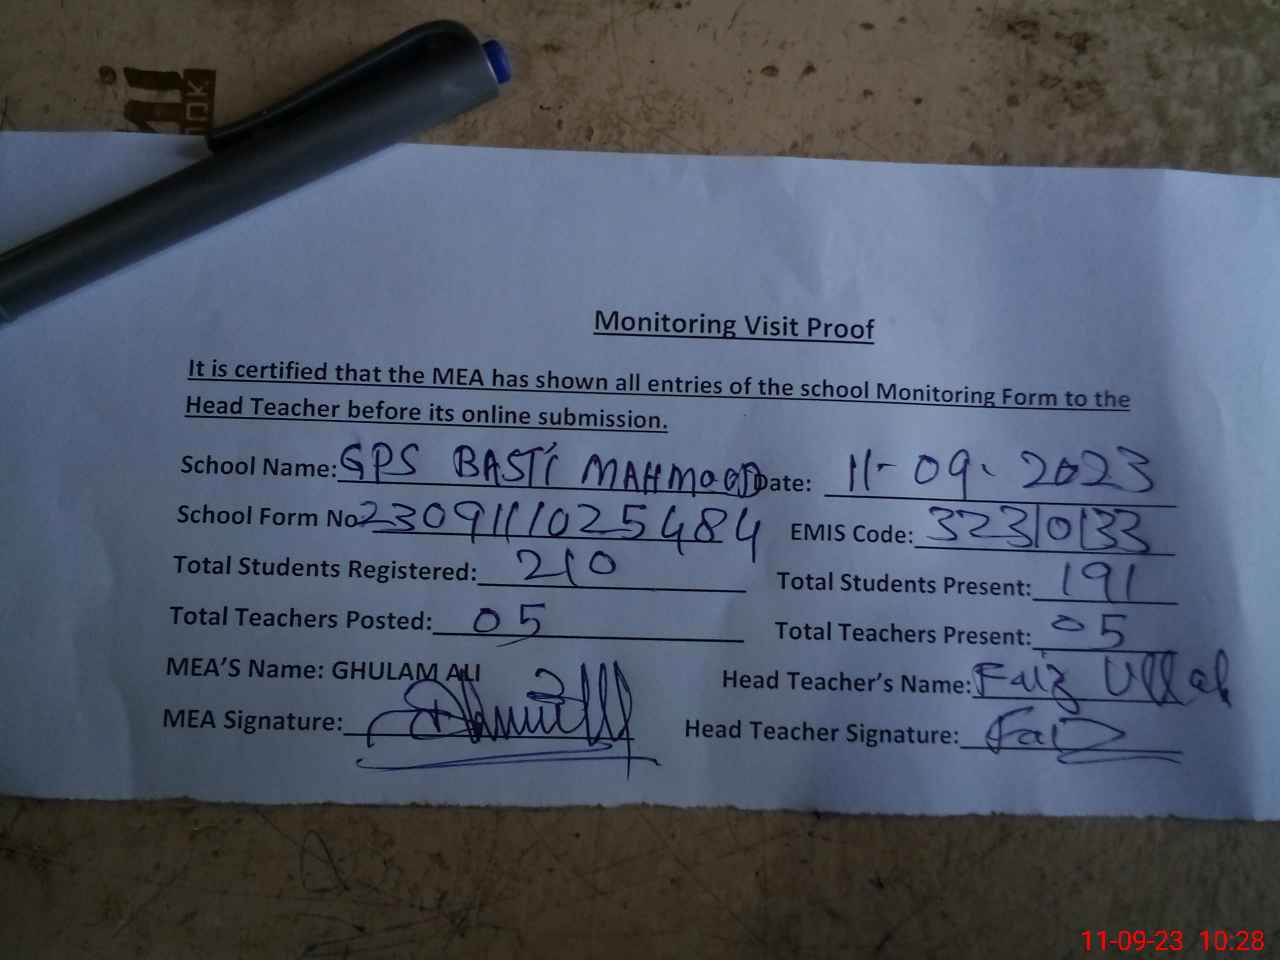 Monitoring Visit Proof
It is certified that the MEA has shown all entries of the school Monitoring Form to the
Head Teacher before its online submission.
School Name: GPS BASTI MAHMOOD Date: 11-09-2023
School Form No 2309111025484 EMIS Code: 32310133
Total Students Registered: 210 Total Students Present: 191
Total Teachers Posted: 05 Total Teachers Present: 05
MEA'S Name: GHULAM ALI Head Teacher's Name: Faiz Ullah
MEA Signature: Head Teacher Signature: Faiz
11-09-23 10:28